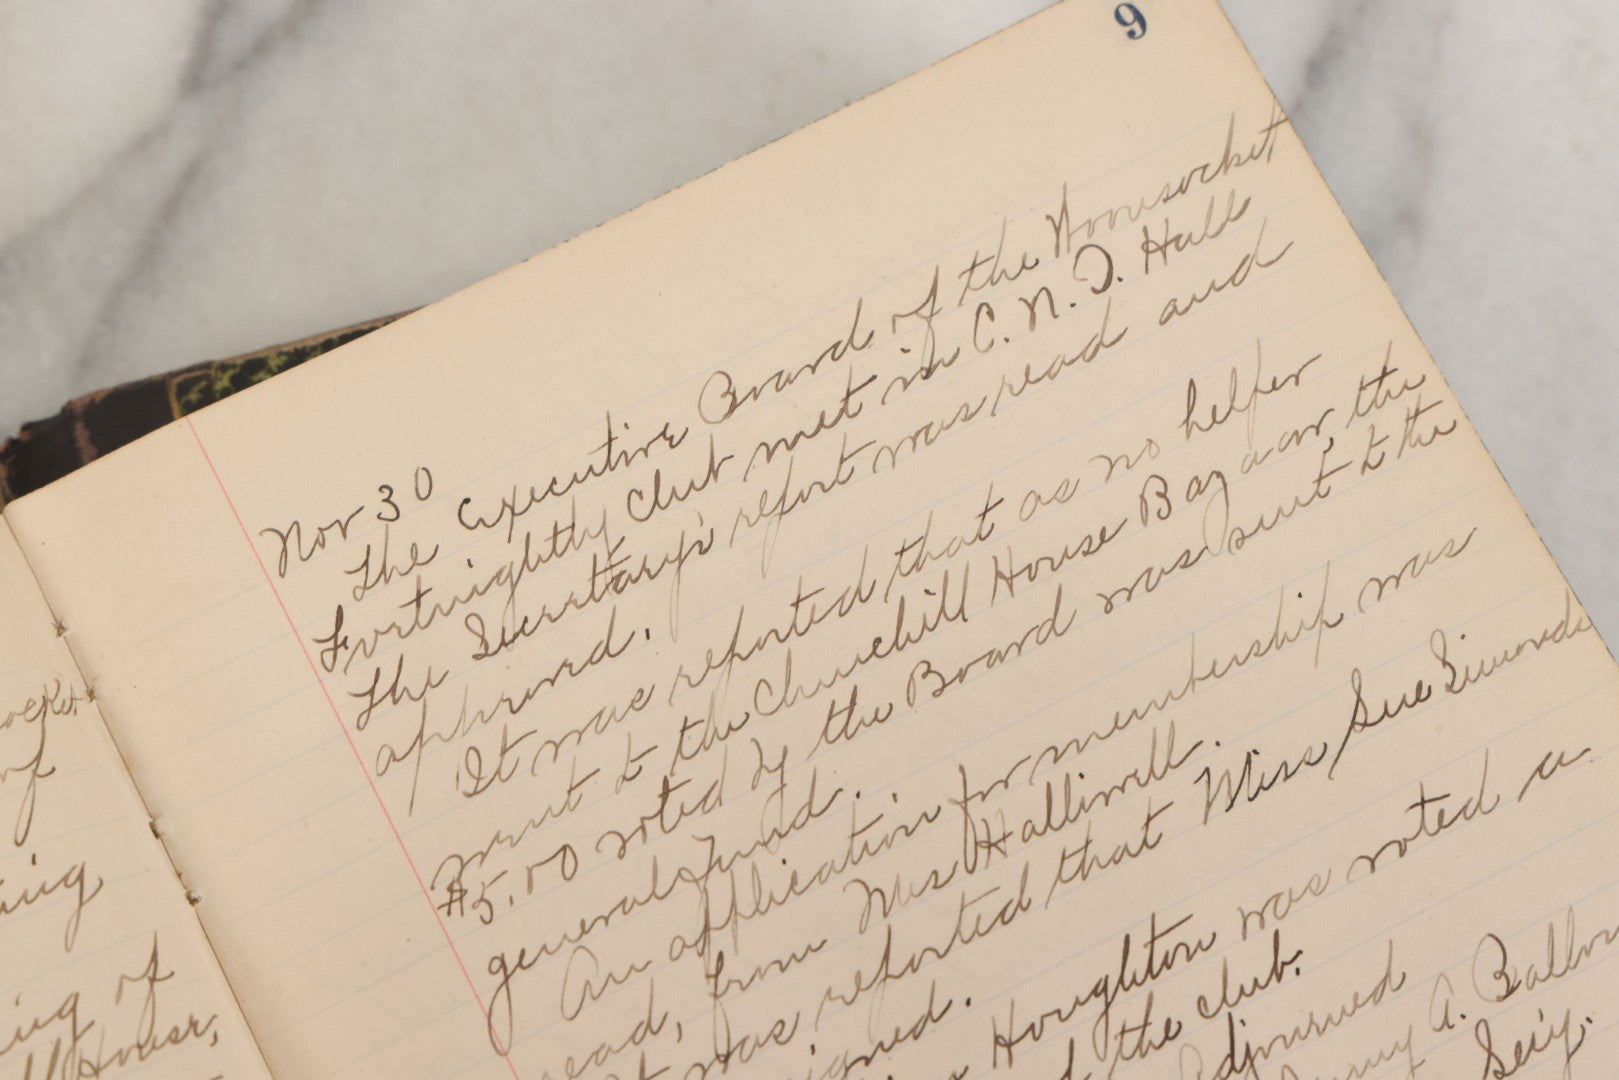 ing
ing of
House,
9
Nov 30
The Executive Board of the Woonsocket
Fortnightly Club met in C. N. D. Hall
The Secretary's report was read and
approved.
It was reported that as no helper
went to the Churchill House Bazaar, the
$5.00 voted by the Board was sent to the
general fund.
An application for membership was
read, from Mrs Halliwell.
It was reported that Miss Sue Simonds
Houghton was voted a
the club.
Adjourned
A. Ballou
Sec'y.